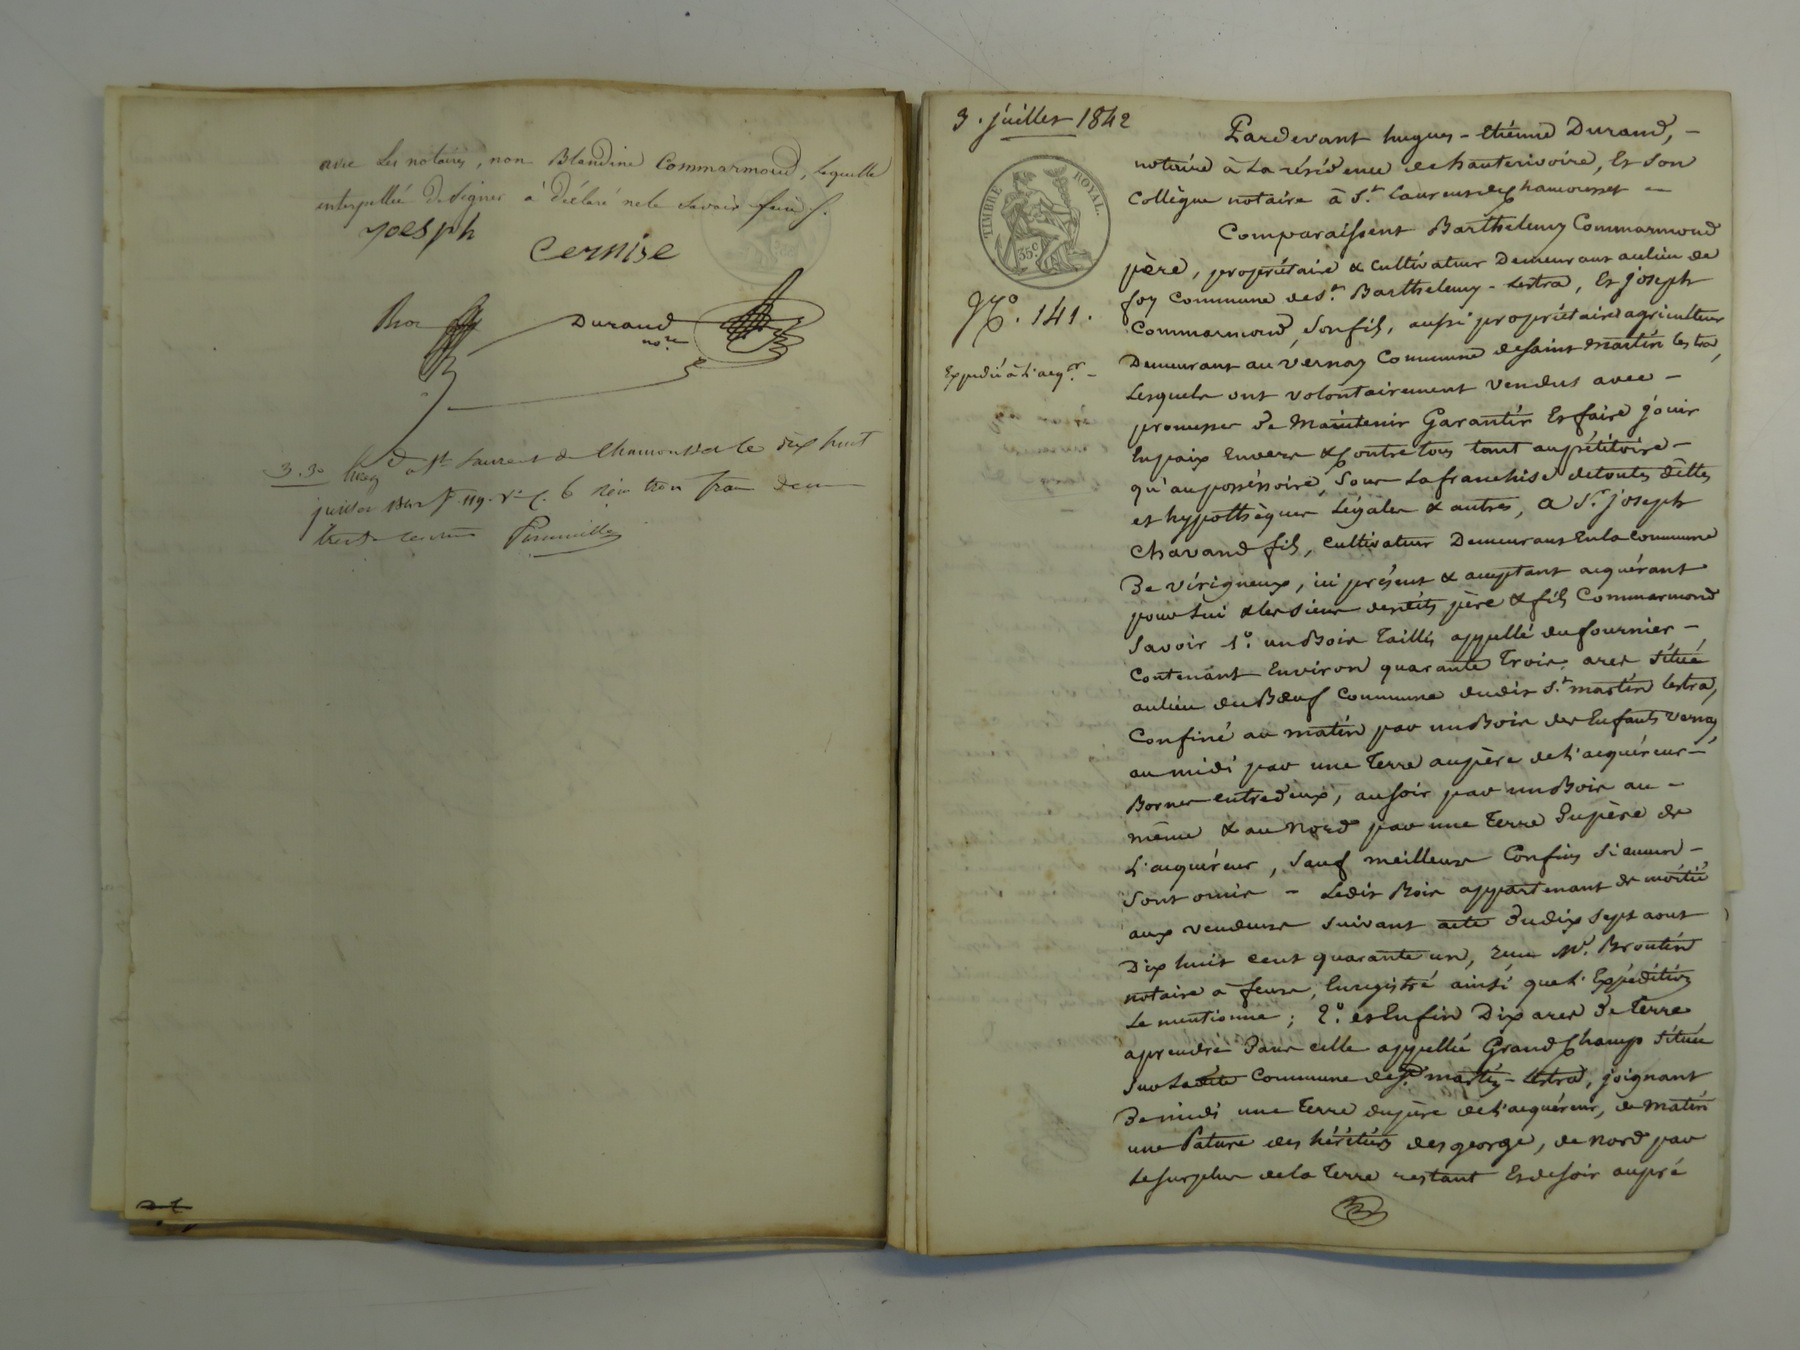 avec les notaires, non Blandine Commarmond, Laquelle
interpellée de signer a déclaré ne le savoir faire.
joesph
cernise
Durand
no.re
3.30
a St Laurent de Chamousset le dix huit
juillet 1842 f. 119. c. 6
trente centimes
3. juillet 1842
TIMBRE ROYAL.
35 c
No. 141.
Expédié à l'acq.r -
Pardevant hugues - Etiénne Durand, -
notaire à La résidence de hauterivoire, Et Son
Collègue notaire à St. Laurent de Chamousset -
Comparaissent Barthelemy Commarmond
père, propriétaire & Cultivateur Demeurant au lieu de
foy Commune de St. Barthelemy - Lestra, Et joseph
Commarmond, Son fils, aussi propriétaire agriculteur
Demeurant au vernay Commune de Saint Martin lestra,
Lesquels ont volontairement vendus avec -
promesse de Maintenir Garantir Et faire jouir
En paix Envers & Contre tous tant au pétitoire -
qu'au possessoire, Sous La franchise de toutes dettes
et hypothèques Légales & autres, a Sr. joseph
Chavand fils, Cultivateur Demeurant En la Commune
De virigneux, ici présent & acceptant acquérant
pour Lui & les Siens desdits père & fils Commarmond
Savoir 1o. un Bois Taillis appellé du fournier -
Contenant Environ quarante Trois ares Situé
au lieu du Bœuf Commune dudit St. martin lestra,
Confiné au matin par un Bois des Enfants Vernay
au midi par une Terre au père de L'acquéreur -
Bornes entredeux, au Soir par un Bois au -
même & au Nord par une Terre du père de
L'acquéreur, Sauf meilleurs Confins Si aucun -
Sont omis - Ledit Bois appartenant de moitié
aux vendeurs Suivant acte du dix Sept aout
Dix huit cent quarante un, reçu Me. Broutin
notaire a feurs, Enregistré ainsi que L'Expédition
Le mentionne; 2o. et Enfin Dix ares de Terre
a prendre Dans celle appellée Grand Champ Située
Sur Ladite Commune de St. martin - Lestra, joignant
De midi une Terre du père de L'acquéreur, de Matin
une Pature des héritiers des george, de Nord par
Le Surplus de la Terre restant Et de Soir au pré